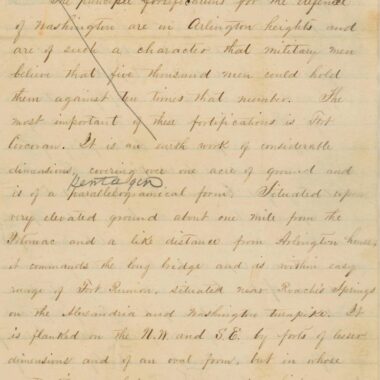 The principal fortifications for the defence
of Washington are on Arlington heights and
are of such a character that military men
believe that five thousand men could hold
them against ten times that number. The
most important of these fortifications is Fort
Corcoran. It is an earth work of considerable
dimensions, covering over one acre of ground and
pentagon
is of a parallelogramical form. Situated upon
very elevated ground about one mile from the
Potomac and a like distance from Arlington house,
it commands the long bridge and is within easy
range of Fort Runion, situated near Roach's Springs
on the Alexandria and Washington turnpike. It
is flanked on the N.W and S.E. by forts of lesser
dimensions and of an oval form, but in whose